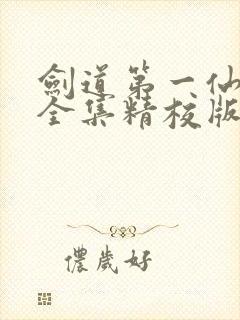 劍道第一仙
全集精校版
儂歲好